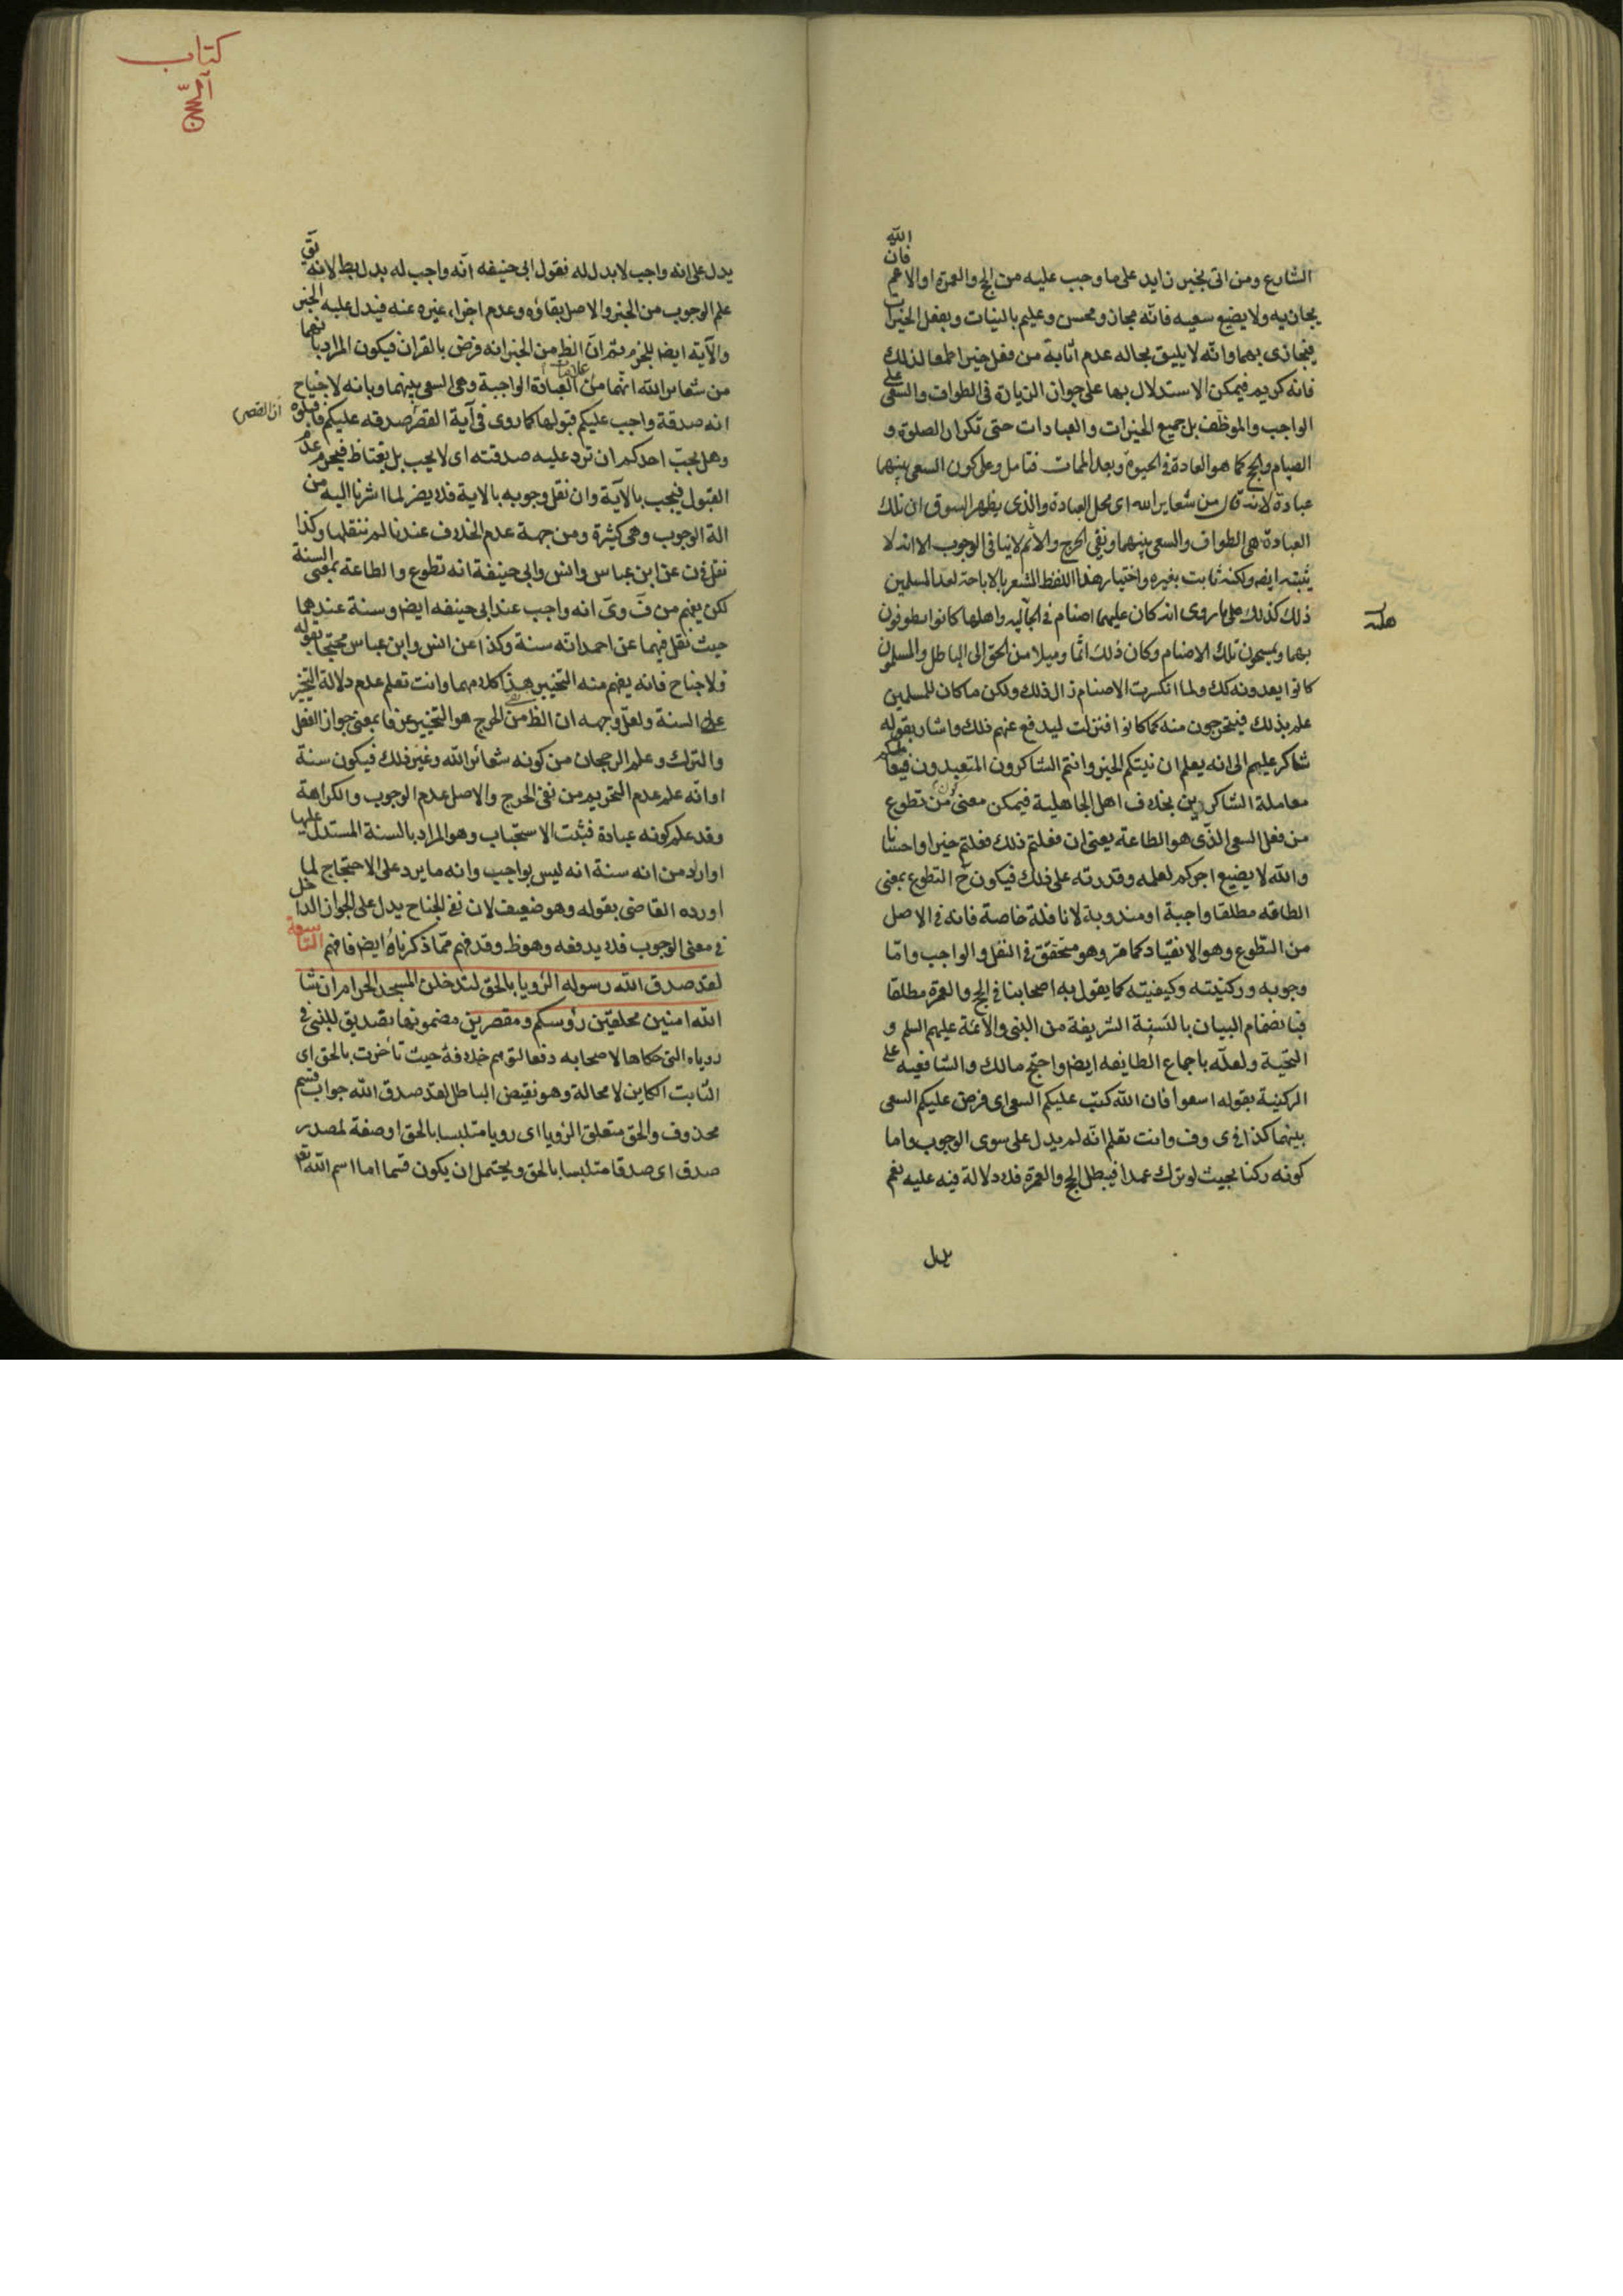 الشارع ومن اتى بخير زايد على ما وجب عليه من الحج والعمرة او الاعم فان الله
يجازيه ولا يضيع سعيه فانه مجاز ومحسن وعليم بالنيات وبفعل الخيرات
فيجازى بهما وانه لا يليق بحاله عدم اثابة من فعل خيرا طمعا لذلك
فانه كريم فيمكن الاستدلال بها على جواز الزيادة فى الطواف والسعى على
الواجب والموظف بل جميع الخيرات والعبادات حتى تكرار الصلوة و
الصيام والحج كما هو العادة فى الحيوة وبعد الممات فتامل وعلى كون السعى بينهما
عبادة لانه قال من شعاير الله اى محل العبادة والذى يظهر السوق ان تلك
العبادة هى الطواف والسعى بينهما ونفى الحرج والاثم لا ينافى الوجوب الا انه لا
يثبته ايض ولكنه ثابت بغيره واختيار هذا اللفظ المشعر بالاباحة لعد المسلمين
ذلك كذلك على ما روى انه كان عليهما اصنام فى الجاهلية واهلها كانوا يطوفون
بهما ويمسحون تلك الاصنام وكان ذلك اثما وميلا من الحق الى الباطل والمسلمون
كانوا يعدونه كك ولما انكسرت الاصنام زال ذلك ولكن ما كان للمسلمين
علم بذلك فيتحرجون منه كما كانوا فنزلت ليدفع عنهم ذلك واشار بقوله
شاكر عليهم الى انه يعلم ان نيتكم الخير وانتم الشاكرون المتعبدون فيعاملكم
معاملة الشاكرين بخلاف اهل الجاهلية فيمكن معنى من تطوع
من فعل السعى الذى هو الطاعة يعنى ان فعلتم ذلك فعلتم خيرا واحسانا
والله لا يضيع اجركم لعلمه وقدرته على ذلك فيكون ح التطوع بمعنى
الطاقه مطلقا واجبة او مندوبة لا نافلة خاصة فانه فى الاصل
من التطوع وهو الانقياد كما مر وهو متحقق فى النفل والواجب واما
وجوبه وركنيته وكيفيته كما يقول به اصحابنا فى الحج والعمرة مطلقا
فبانضمام البيان بالسنة الشريفة من النبى والائمة عليهم السلم و
التحية ولعله باجماع الطايفه ايض واحتج مالك والشافعيه على
الركنية بقوله اسعوا فان الله كتب عليكم السعى اى فرض عليكم السعى
بينهما كذا فى ى وف وانت تعلم انه لم يدل على سوى الوجوب واما
كونه ركنا بحيث لو ترك عمدا فيبطل الحج والعمرة فلا دلالة فيه عليه نعم
يدل
كتاب
يدل على انه واجب لا بدل له فقول ابى حنيفه انه واجب له بدل بط لانه
علم الوجوب من الخبر والاصل بقاؤه وعدم اجزاء غيره عنه فيدل عليه الخبر
والآية ايضا للجزم ثم ان الظ من الخبر انه فرض بالقران فيكون المراد بانهما
من شعائر الله انهما من علامات العبادة الواجبة وهى السعى بينهما وبانه لا جناح
انه صدقة واجب عليكم قبولها كما روى فى آية القصر صدقه عليكم فاقبلوه
وهل يجب احدكم ان ترد عليه صدقته اى لا يحب بل يغتاظ فيحرم عدم
القبول فيجب بالآية وان نقل وجوبه بالاية فلا يضر لما اشرنا اليه من
الة الوجوب وهى كثيرة ومن جهة عدم الخلاف عندنا لم ننقلها وكذا
نقل فى ن عن ابن عباس وانس وابى حنيفة انه تطوع والطاعة بمعنى السنة
لكن يفهم من ف وى انه واجب عند ابى حنيفه ايض وسنة عندهما
حيث نقل فيهما عن احمد انه سنة وكذا عن انس وابن عباس محتجا بقوله
فلا جناح فانه يفهم منه التخيير هذا كلامهما وانت تعلم عدم دلالة التخيير
على السنة ولعل وجهه ان الظ من نفى الحرج هو التخيير عرفا بمعنى جواز الفعل
والترك وعلم الرجحان من كونه شعائر الله وغير ذلك فيكون سنة
او انه علم عدم التحريم من نفى الحرج والاصل عدم الوجوب والكراهة
وقد علم كونه عبادة فثبت الاستحباب وهو المراد بالسنة المستدل عليها
او اراد من انه سنة انه ليس بواجب وانه ما يرد على الاحتجاج لما
اورده القاضى بقوله وهو ضعيف لان نفى الجناح يدل على الجواز الداخل
فى معنى الوجوب فلا يدفعه وهو ظ وقد فهم مما ذكرناه ايض فافهم التاسعة
لقد صدق الله رسوله الرؤيا بالحق لتدخلن المسجد الحرام ان شا
الله امنين محلقين رؤسكم ومقصرين مضمونها تصديق للنبى فى
روياه التى حكاها لاصحابه دفعا لتوهم خلافه حيث تأخرت بالحق اى
الثابت الكاين لا محالة وهو نقيض الباطل لقد صدق الله جواب قسم
محذوف والحق متعلق الرؤيا اى رويا متلبسا بالحق او صفة لمصدر
صدق اى صدقا متلبسا بالحق ويحتمل ان يكون قسما اما اسم الله تعا